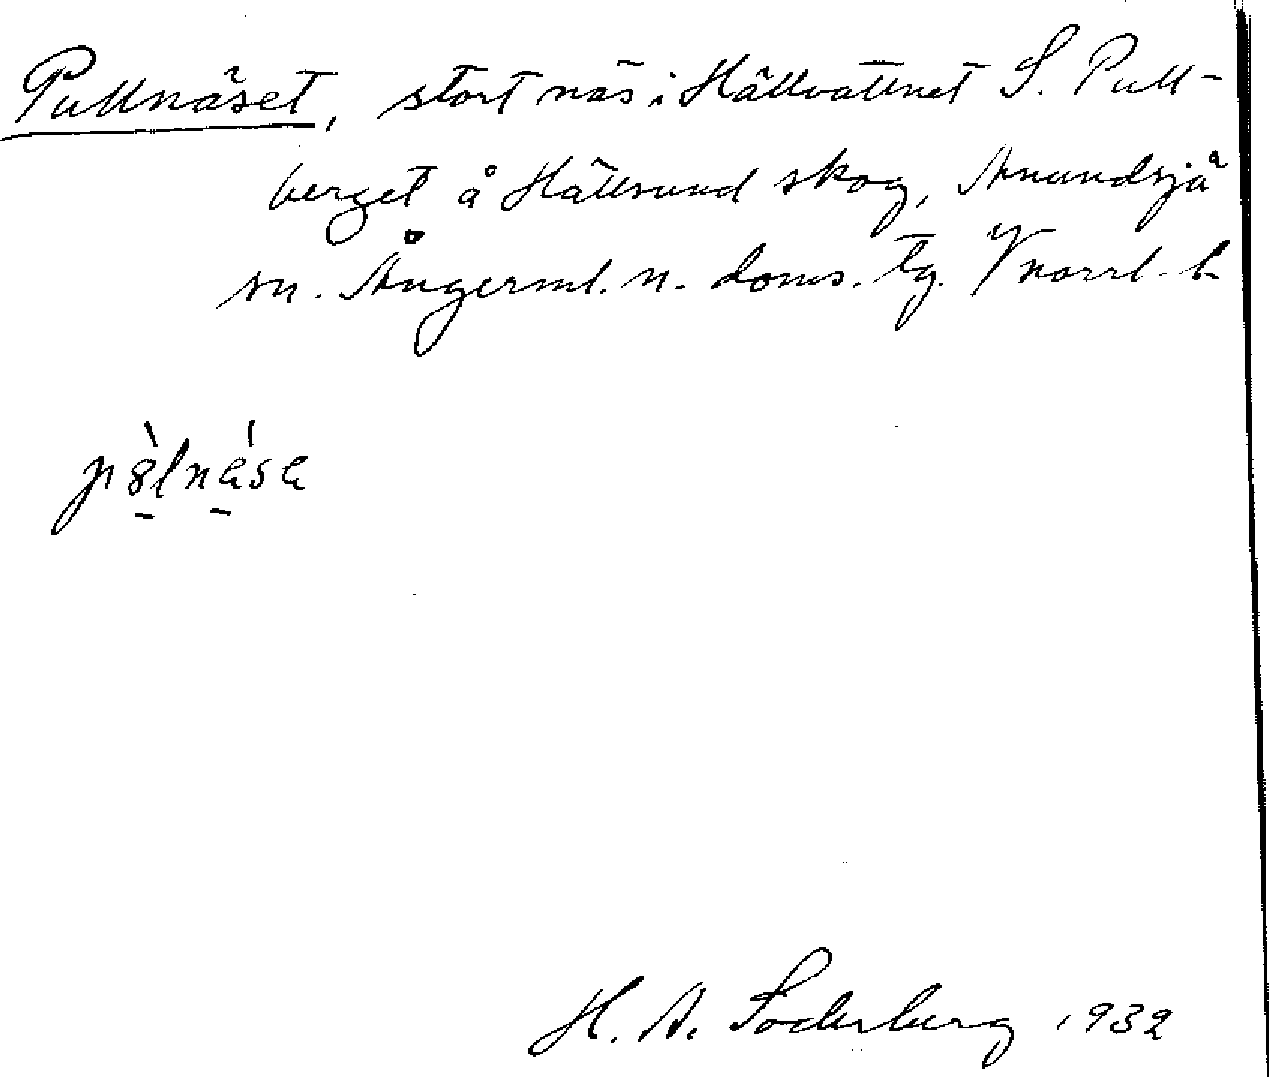 Pullnäset, stort näs i Hällvattnet S. Pull-
berget å Hällsund skog, Anundsjö
sn. Ångerml. n. doms. tg. Vnorrl. l.
pòlnása
H. A. Söderberg 1932